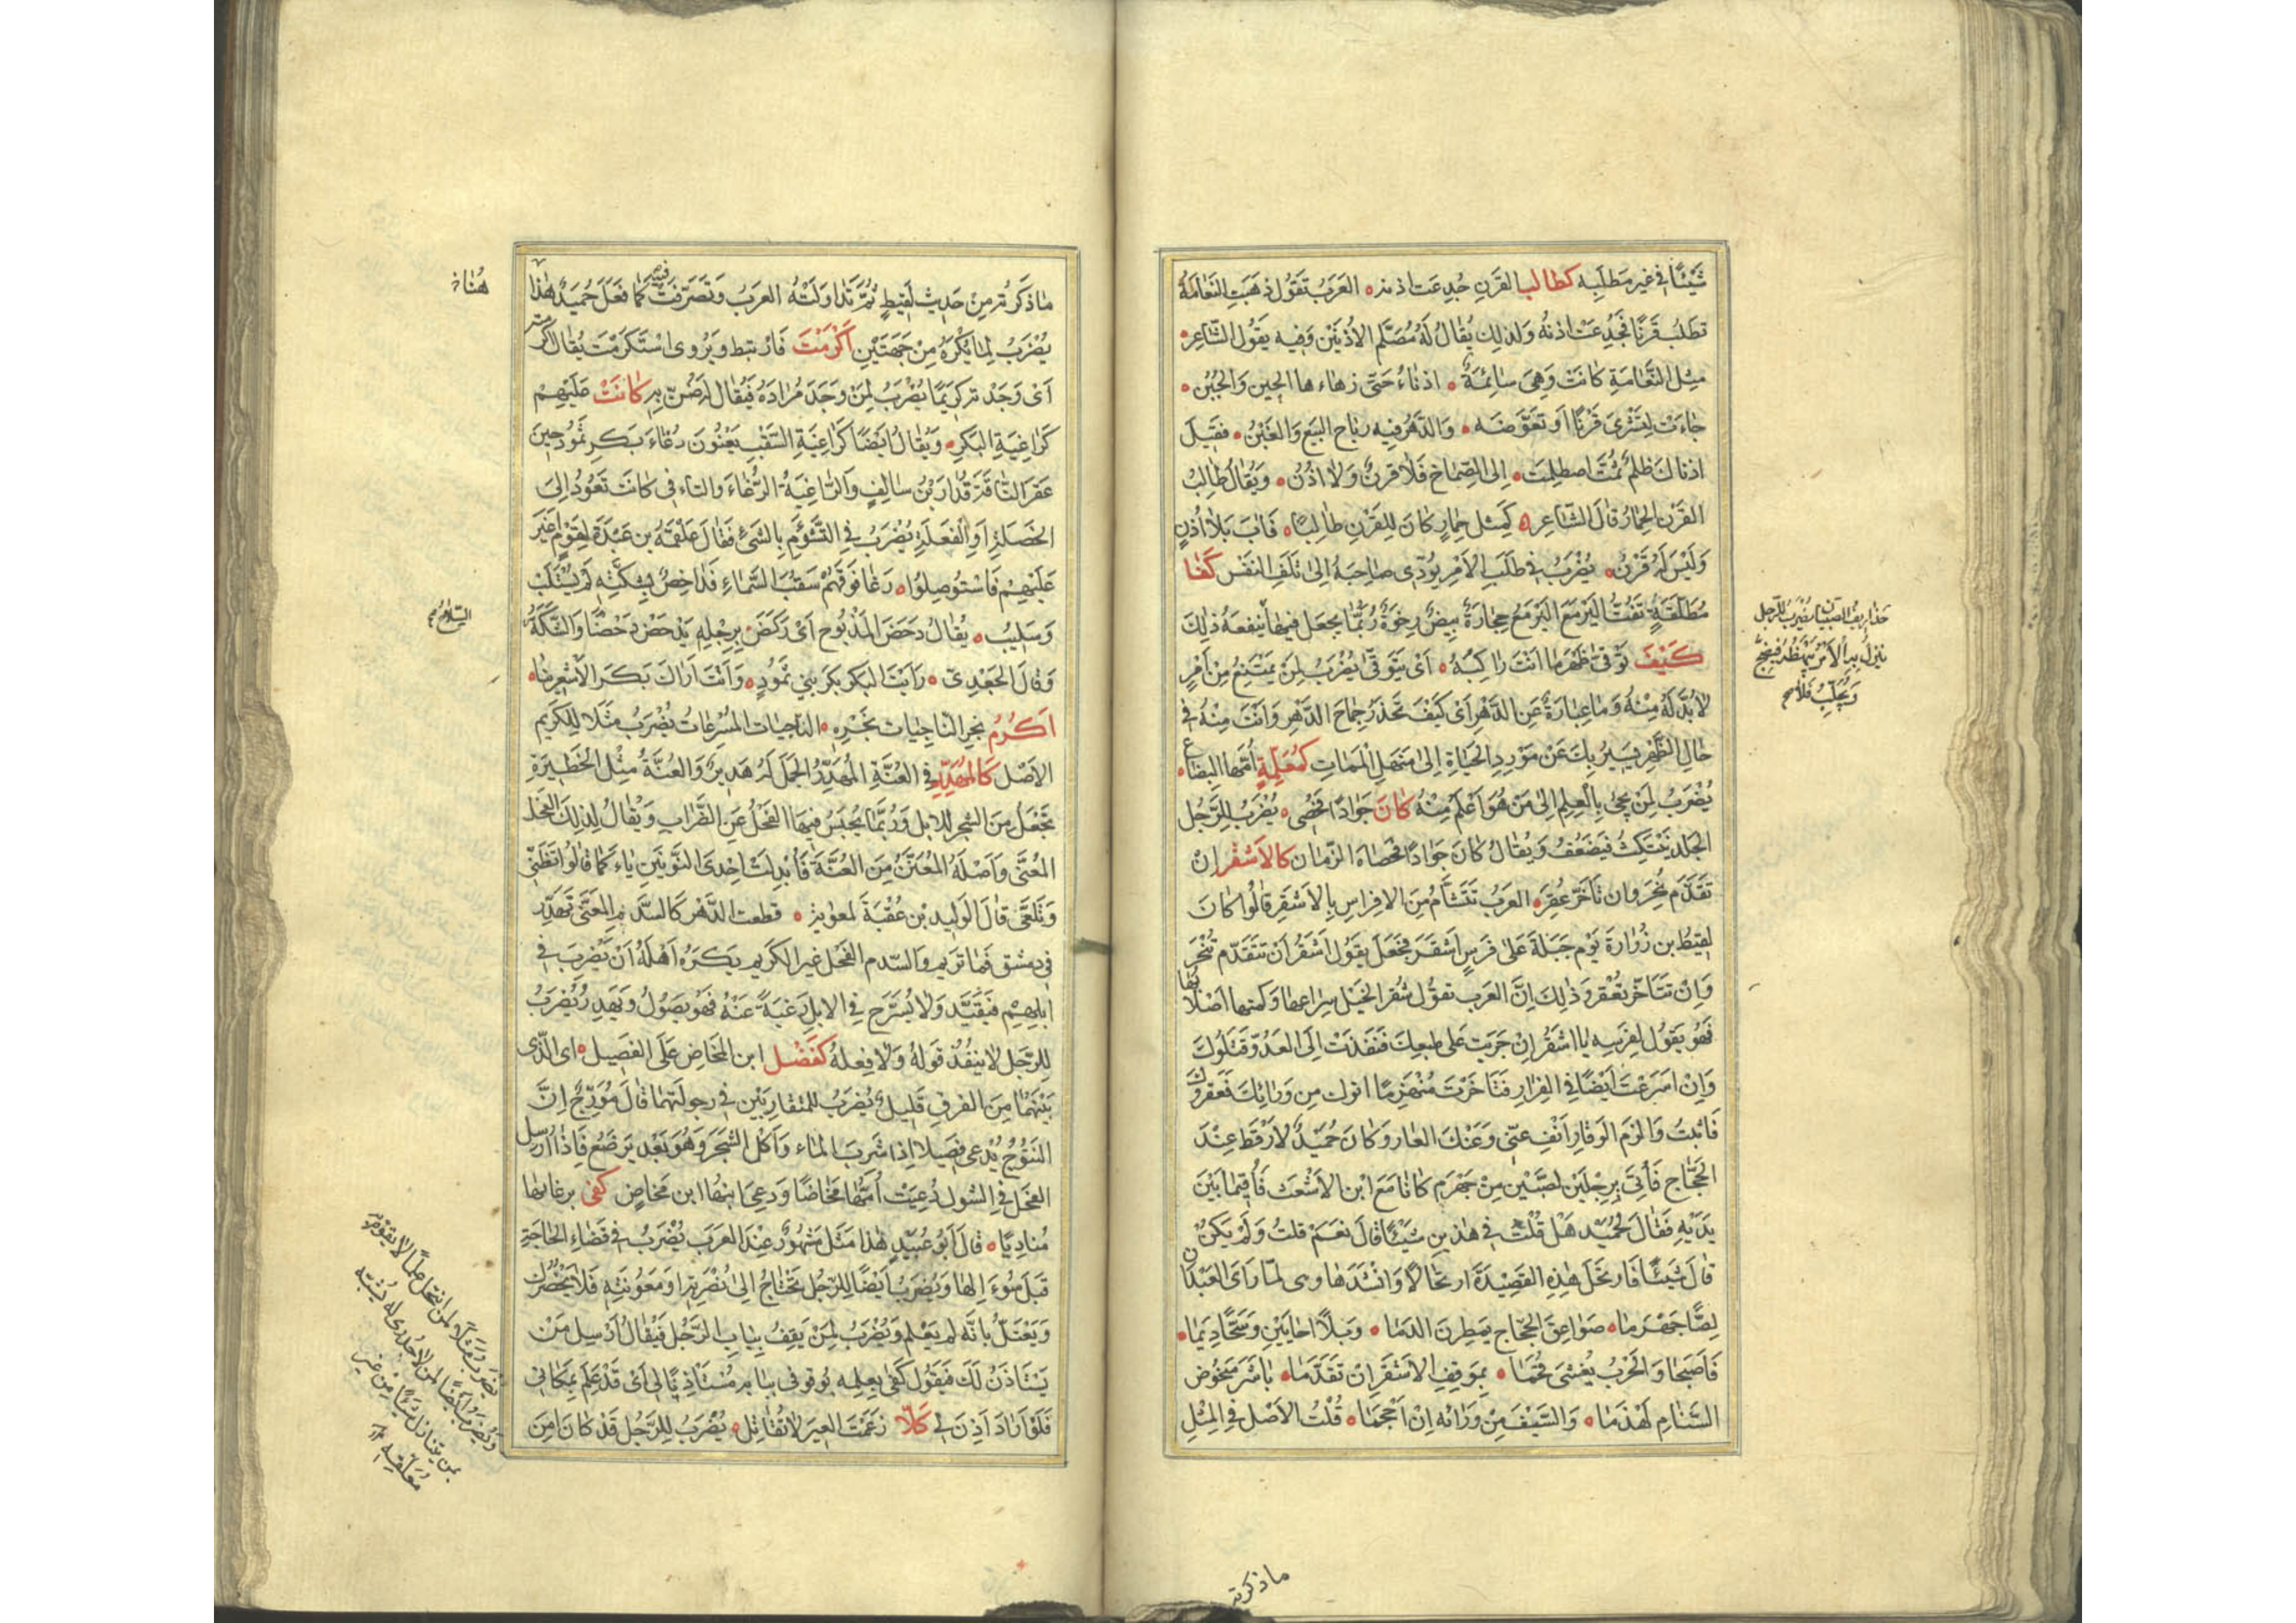 شَيْئًا في غير مَطلَبِه كطالب القَرنِ جُدِعَت اذنه العَرَب تقَوُل ذهَبَتِ النَّعَامَة
تَطلُبُ قَرنًا فجُدِعَتْ اذنُه ولذلِك يُقَالُ لَهُ مُصَلَّم الأُذنَيْن وَفيه يقوُل الشّاعر
مِثل النَّعَامَةِ كانَتْ وَهِيَ سَائِمَةٌ اذنَاءُ حَتّى زهاءها الحين وَالجُبُن
جاءَت لِتَشْرىَ قَرْنًا او تعَوَّضَه والدَّهرُ فيه رباح البَيع وَالغَبْنُ فقيلَ
اذناك ظلمٌ ثمَّت اصطلمَت الى الصِّماخ فلا قرنٌ وَلا اذنُ وَيُقال طَالِبُ
القَرْن الحِمَارُ قالَ الشّاعر كَمِثل حِمارٍ كانَ لِلقَرْنِ طالِبًا فَابَ بِلا اُذنٍ
وَلَيْسَ لَهُ قَرْنُ يُضْرَبُ في طَلَبِ الأَمْر يُودّى صاحِبَهُ الى تَلَفِ النفَس كَفّا
مُطَلَّقَةٍ تَفُتُّ اليَرْمَعَ اليَرْمَع حِجارَةٌ بيضٌ رخِوَةٌ رُبَّما يجعَل فيها يَنفعهُ ذلِكَ
كَيْفَ تَوَقّى ظَهْرَ ما انتَ راكبُهُ اى يتَوَقّى يُضْرَبُ لِمَنْ يَمْتَنِعُ مِنْ اَمْرٍ
لا بُدَّ لَهُ مِنْهُ وَما عِبارَةٌ عَنِ الدَّهْر اى كَيفَ تَحذَرُ جِماحَ الدَّهْر وَانتَ مِنْهُ في
حالِ الظَّهر يسيرُ بِكَ عَنْ مَوْرِدِ الحَيَاةِ الى مَنهَلِ المَماتِ كمُعَلِّمَةٍ اُمَّها البِضاع
يُضْرَبُ لِمَنْ يَجئُ بِالعِلم الى مَن هُوَ اعْلَم مِنْهُ كانَ جَوادًا فخُصِى يُضْرَبُ لِلرَّجُل
الجَلد يَنتكِثُ فيَضعُف وَيُقالُ كانَ جَوادًا فخصاه الزّمان كالأشقر إن
تَقَدَّم نُحِرَ وان تأخّر عُقِر العَرَبُ تَتَشأَّمُ مِنَ الافراسِ بِالأشقَر قالوُا كانَ
لقيطُ بن زُرارة يَوْم جَبَلة عَلىٰ فرَسٍ اشقَر فجَعَل يقوُل اشقَر ان تتقدّم تُنْحَر
وَاِنْ تتَأخّر تعُقَر وذلِكَ اِنَّ العَرَب تقوُل شُقر الخيل سِراعها وكمتها اَصْلابها
فَهُو يَقوُل لفرَسِه يا اشقَر اِنْ جَرَيت عَلى طبعِك فنفَذتَ الى العَدُوّ قتَلوُك
وَاِنْ اسَرعَت ايضًا في الفِرارِ فَتَاخَّرتَ مُنهَزِمًا اتوك مِن وَرائِكَ فعَقروك
فَاثبُت وَالزَم الوَقار اَنْفِ عنّى وَعَنكَ العار وَكانَ حُميدٌ الارقط عِنْدَ
الحَجّاج فَأتىَ برجُلَين لصَّين مِنْ جَهرَم كانا مَعَ ابن الاشعَث فاُقيما بَيْنَ
يَدَيْهِ فقالَ لِحُميْد هَل قُلتَ في هٰذين شَيْئًا قالَ نعَم قلتُ وَلمَ يَكنْ
قالَ شَيئًا فارتحَل هٰذِه القَصيدَة ارتحالاً وَانشدَها وهى لمّا رَاىَ العَبْدَان
لِصًّا جَهْرَما صَواعِقَ الحَجّاج يَمطِرنَ الدما وَبلاً احَايين وَسَحًّا دِيَما
فَاصبَحا وَالحَرْبُ يُغشى قُحَما بموَقِفِ الاشقَر اِنْ تقدَّما باشَرَ مَنخوُض
السّنَانِ لَهذَما وَالسَّيْفَ مِنْ وَرائه اِنْ اَحْجَما قُلتُ الاَصْل في المِثل
حَذارِيف الصّبيان يُضرَب للرّجل
ما ذكرته
ما ذكَرتُه مِنْ حَديث لقيطٍ ثمَّ تَداوَلتَهُ العَرَبُ وَتصَرّفَتْ فيه كَما فعَلَ حُميَدٌ هٰذا
يُضْرَبُ لِما يُكْرَهُ مِنْ جهَتَينِ اَكْرَمْتَ فارْتبط وَيُروى اسْتكرَمْتَ يُقالُ اكرمت
اَىْ وَجَدْت كريمًا يُضْرَبُ لِمَنْ وَجَدَ مُرادَهُ فيُقال له ضنّ بِه كانَتْ عَلَيْهِمْ
كَراغيَةِ البَكرِ وَيُقالُ ايضًا كراغيَةِ السَّقْبِ يَعْنُونَ رُغاءَ بَكرِ ثمُودَ حينَ
عَقر النّاقَة قُدارُ بنُ سالِفٍ وَالرّاغِيَة الرُّغاءَ وَالتاء فى كانَت تعَوُد الى
الخصَلةِ اَوِ الفَعَلَةِ يُضرَبُ في التَّشؤَّم بِالشَئ فقَال علقمَة بن عَبدَة لِقومٍ اُغيرَ
عَلَيهِم فاستوُصِلوُا رَغا فَوقَهُمْ سَقبُ السَّماءِ فداحِصٌ بِشِكّتِهِ لمَ يُسْتَلَبْ
وَسَليبُ يُقالُ دَحَصَ المذبُوح اىْ رَكَضَ بِرِجلِهِ يَدْحَصُ دَحْصًا وَالشِّكَّةُ السِّلاحُ
وَقالَ الجَعْدِىّ رَأيْتَ البَكر بَكرَ بَنى ثَمُودٍ وَاَنتَ اَراكَ بَكرَ الاَشْعرينا
اَكرَمُ نَجرِ النّاجِيات نَجْرِهِ النّاجيات المُسْرِعاتُ يُضْرَبُ مَثَلا لِلكَريم
الاَصْل كالمُهَدِّرِ في العُنَّةِ المُهَدِّرُ الجَمَل لَهُ هَدِيرٌ وَالعُنَّةُ مِثْلُ الحَظيرَةِ
تجعَلُ مِنَ الشجر للابل وَرُبَّما يُحبَسُ فيها الفحْلُ عَنِ الضِّرابِ وَيُقالُ لِذلِكَ الفحل
المُعَنّى وَاَصْلَهُ المُعَنَّنُ مِنَ العُنَّة فاُبدِلت اِحدىَ النوُّنَينِ ياءً كَما قالوُا تظَنّى
وَتلَعّى قالَ الوَليد بن عُقْبَةَ لمعوية قطعت الدّهْر كالسَّدِم المُعَنّى تهَدِّر
في دِمَشق فَما تَريم وَالسّدم الفحْل غير الكَريم يَكرَه اَهلهُ اَنْ يَضْرِبَ في
ابلِهِمْ فيُقيَّد وَلا يُسَرَّح في الابِل رَغبَةً عَنْهُ فهُو يصَوُلُ وَيَهدِرُ يُضرَبُ
لِلرّجَل لا ينفُذ قولهُ وَلا فِعلهُ كفَضْل ابن المَخاضِ عَلى الفَصِيل اى الذّى
بَيْنهُما مِنَ الفرقِ قليلٌ يُضرَبُ للمتقارِبَيْن في رجولَتِهما قالَ مُوَرّج اِنَّ
المنتُوج يُدْعى فصِيلا اِذا شرِبَ الماء وَاكلَ الشجَر وَهُوَ بَعْد يَرضَع فاذا ارُسل
الفحَل في الشّول دُعيَت اُمّها مَخاضًا وَدعِىَ ابنها ابن مَخاضٍ كفى برغائها
مُناديًا قالَ اَبُو عُبَيْدٍ هٰذا مَثَل مَشهُورٌ عِندَ العَرَب يُضْرَبُ في قضَاءِ الحاجَةِ
قَبلَ سُوءَ الها وَيُضرَبُ اَيضًا للِرّجُلِ تَحْتاجُ الى نُصْرَتِه اَو مَعُونَتِهِ فلا يَحْضُرك
وَيعتلّ بانّه لم يَعْلم وَيُضْرَبُ لِمَنْ يَقِفُ بِبابِ الرَّجُل فيُقالُ اَرْسِل مَنْ
يَسْتَاذِنُ لَكَ فيَقوُل كَفى بِعِلمِه بوُقوفي ببابه مُستاذِنًا لى اَى قَدْ عَلِمَ بمَكانى
فلَوْ اَرادَ اَذِنَ لى كَلّا زَعَمَت العِيرَ لا تُقاتِل يُضْرَبُ لِلرَّجُل قد كانَ اَمِنَ
السّلاح